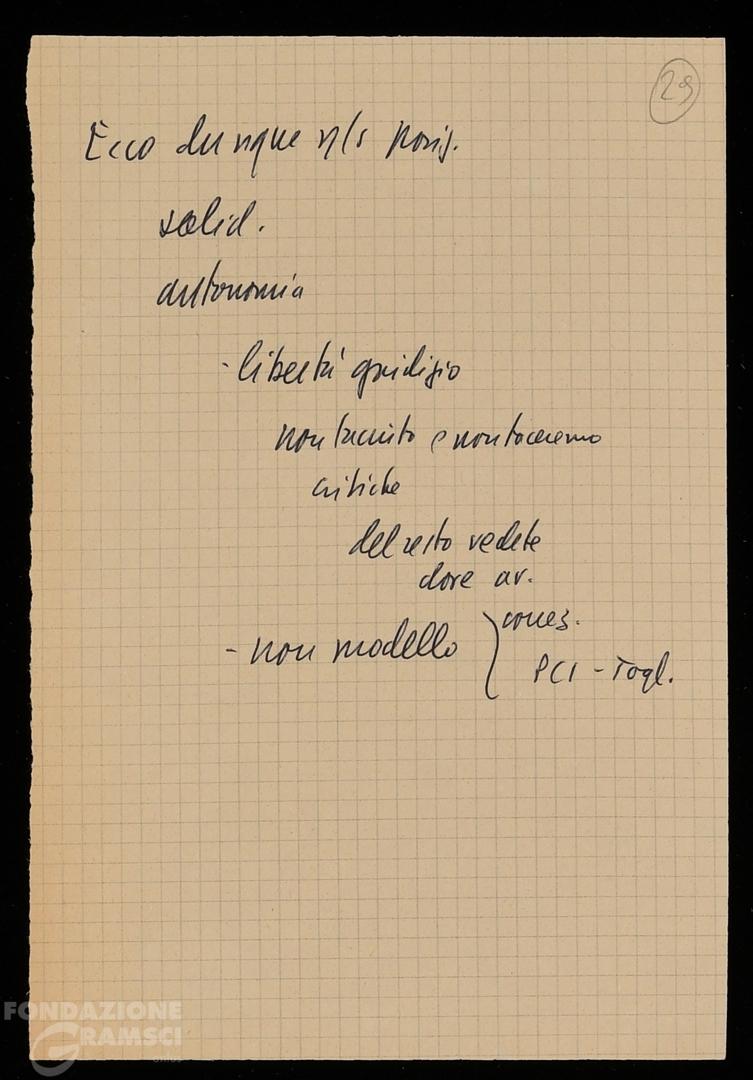 29
Ecco dunque n/s posiz.
solid.
autonomia
- libertà giudizio
non taciuto e non taceremo
critiche
del resto vedete
dove av.
- non modello } concez.
PCI - Togl.
FONDAZIONE
GRAMSCI
onlus